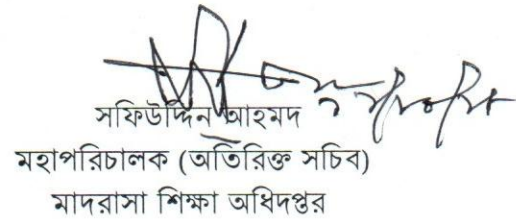 সফিউদ্দিন আহমদ
মহাপরিচালক (অতিরিক্ত সচিব)
মাদরাসা শিক্ষা অধিদপ্তর